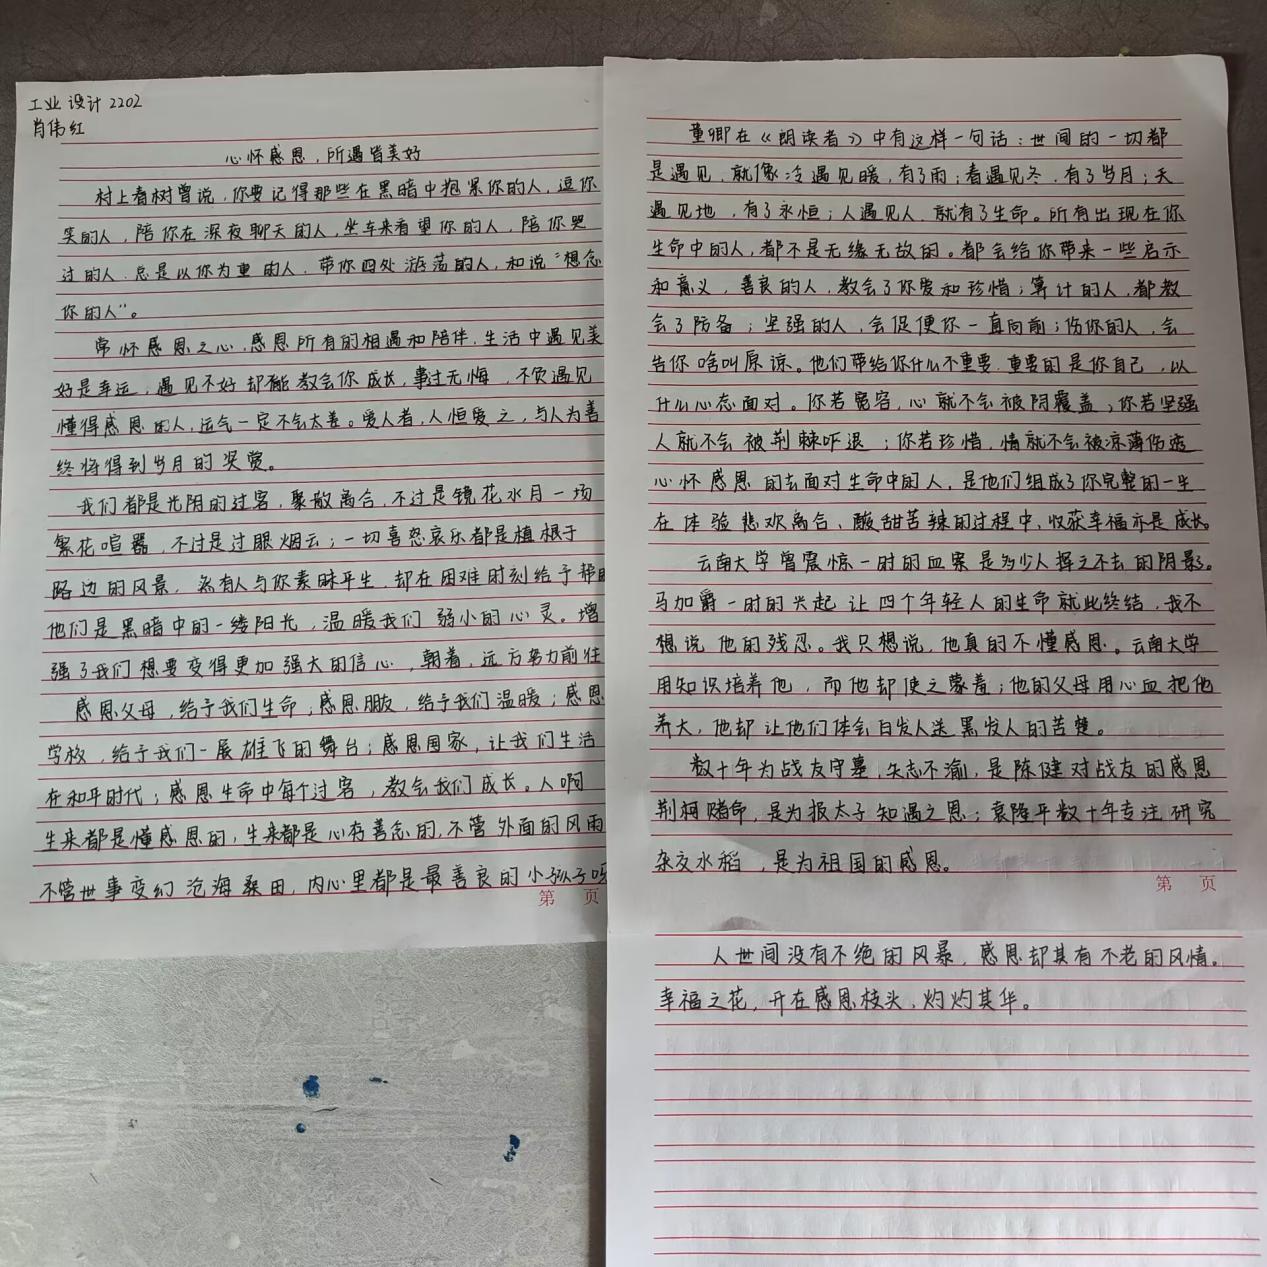 工业设计2202
肖伟红
心怀感恩,所遇皆美好
村上春树曾说,你要记得那些在黑暗中抱紧你的人,逗你
笑的人,陪你在深夜聊天的人,坐车来看望你的人,陪你哭
过的人.总是以你为重的人.带你四处游荡的人,和说“想念
你的人”。
常怀感恩之心,感恩所有的相遇和陪伴.生活中遇见美
好是幸运,遇见不好却能教会你成长,事过无悔,不负遇见
懂得感恩的人,运气一定不会太差。爱人者,人恒爱之,与人为善
终将得到岁月的奖赏。
我们都是光阴的过客,聚散离合,不过是镜花水月一场
繁花喧嚣,不过是过眼烟云;一切喜怒哀乐都是植根于
路边的风景.然有人与你素昧平生.却在困难时刻给予帮助
他们是黑暗中的一缕阳光,温暖我们弱小的心灵。增
强了我们想要变得更加强大的信心,朝着,远方努力前往
感恩父母,给予我们生命;感恩朋友,给予我们温暖;感恩
学校,给予我们一展雄飞的舞台;感恩国家,让我们生活
在和平时代;感恩生命中每个过客,教会我们成长。人啊
生来都是懂感恩的,生来都是心存善念的,不管外面的风雨
不管世事变幻沧海桑田,内心里都是最善良的小孩子呀
第 页
董卿在《朗读者》中有这样一句话:世间的一切都
是遇见,就像冷遇见暖,有了雨;春遇见冬.有了岁月;天
遇见地,有了永恒;人遇见人.就有了生命。所有出现在你
生命中的人,都不是无缘无故的。都会给你带来一些启示
和意义,善良的人,教会了你爱和珍惜;算计的人,都教
会了防备;坚强的人,会促使你一直向前;伤你的人,会
告你啥叫原谅。他们带给你什么不重要.重要的是你自己,以
什么心态面对。你若宽容,心就不会被阴霾覆盖;你若坚强
人就不会被荆棘吓退;你若珍惜,情就不会被凉薄伤透
心怀感恩的去面对生命中的人,是他们组成了你完整的一生
在体验悲欢离合、酸甜苦辣的过程中,收获幸福亦是成长
云南大学曾震惊一时的血案是多少人挥之不去的阴影。
马加爵一时的兴起让四个年轻人的生命就此终结,我不
想说他的残忍。我只想说,他真的不懂感恩。云南大学
用知识培养他,而他却使之蒙羞;他的父母用心血把他
养大,他却让他们体会白发人送黑发人的苦楚。
数十年为战友守墓,矢志不渝,是陈健对战友的感恩
荆柯赌命,是为报太子知遇之恩;袁隆平数十年专注研究
杂交水稻,是为祖国的感恩。
第 页
人世间没有不绝的风暴,感恩却具有不老的风情。
幸福之花,开在感恩枝头,灼灼其华。